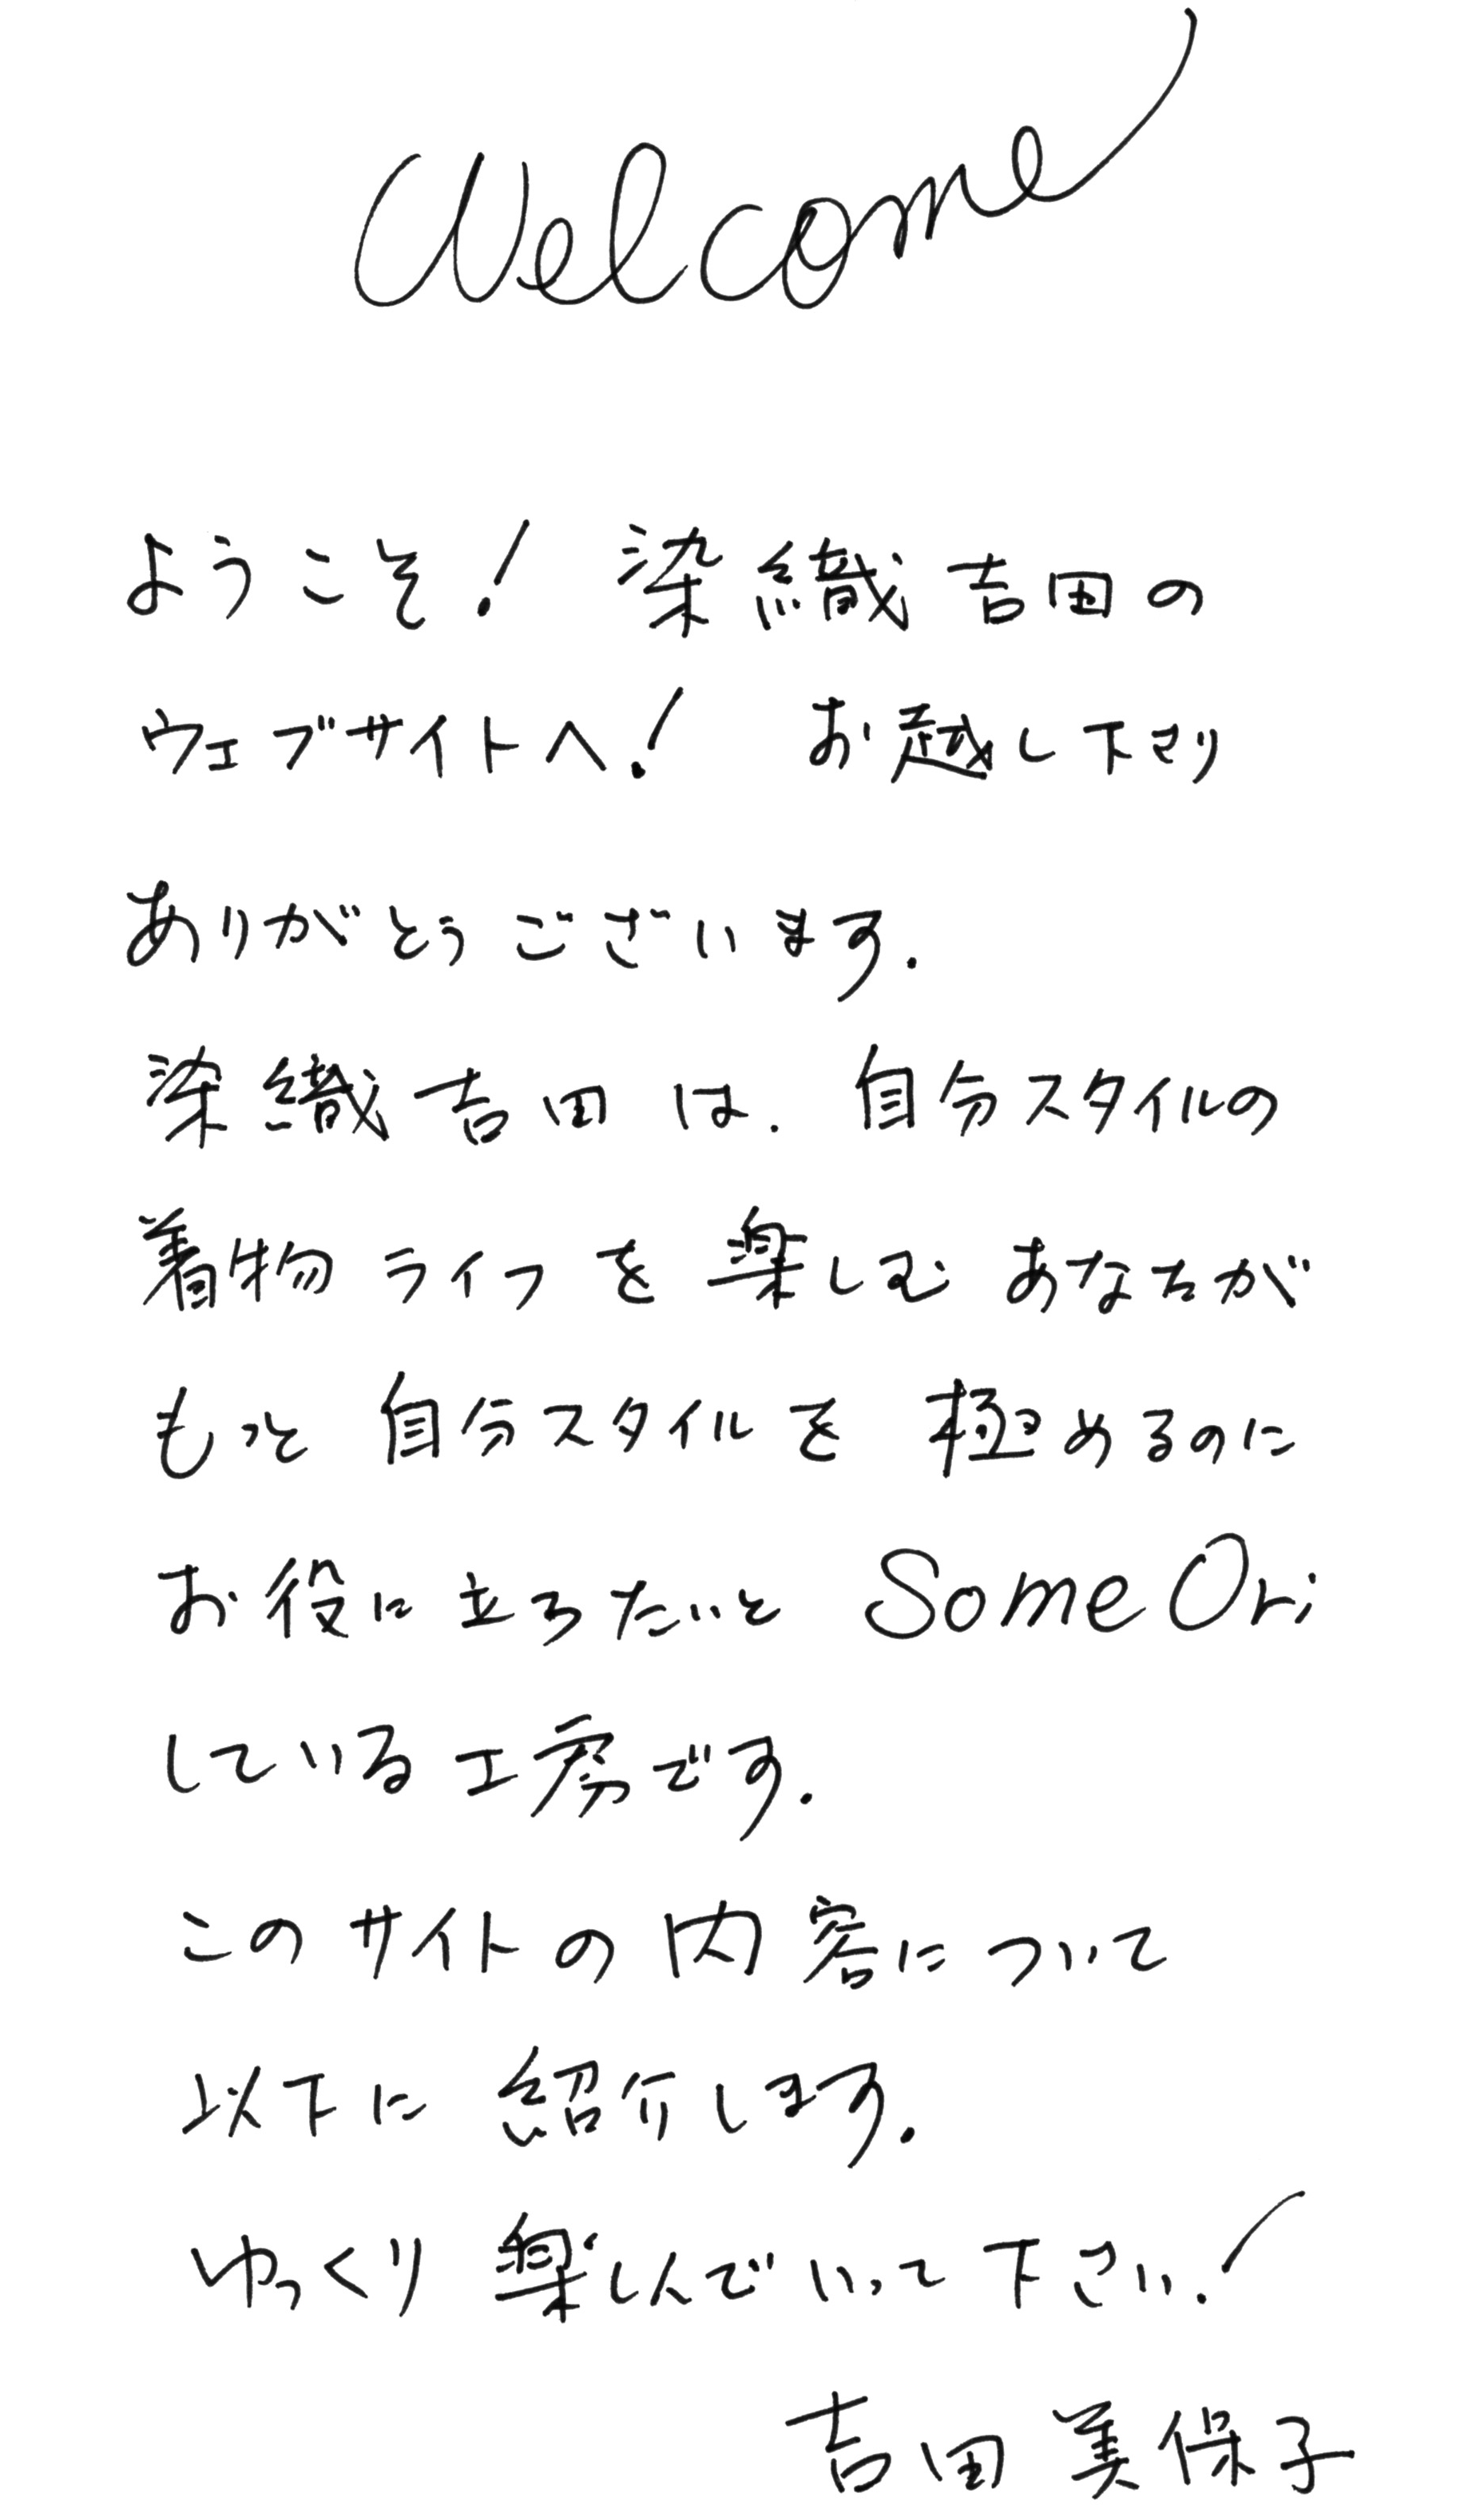 Welcome
ようこそ! 染織吉田の
ウェブサイトへ! お越し下さり
ありがとうございます.
染織吉田は. 自分スタイルの
着物ライフを楽しむあなたが
もっと自分スタイルを極めるのに
お役に立ちたいと SomeOri
している工房です.
このサイトの内容について
以下に紹介します.
ゆっくり楽しんでいって下さい!
吉田美保子